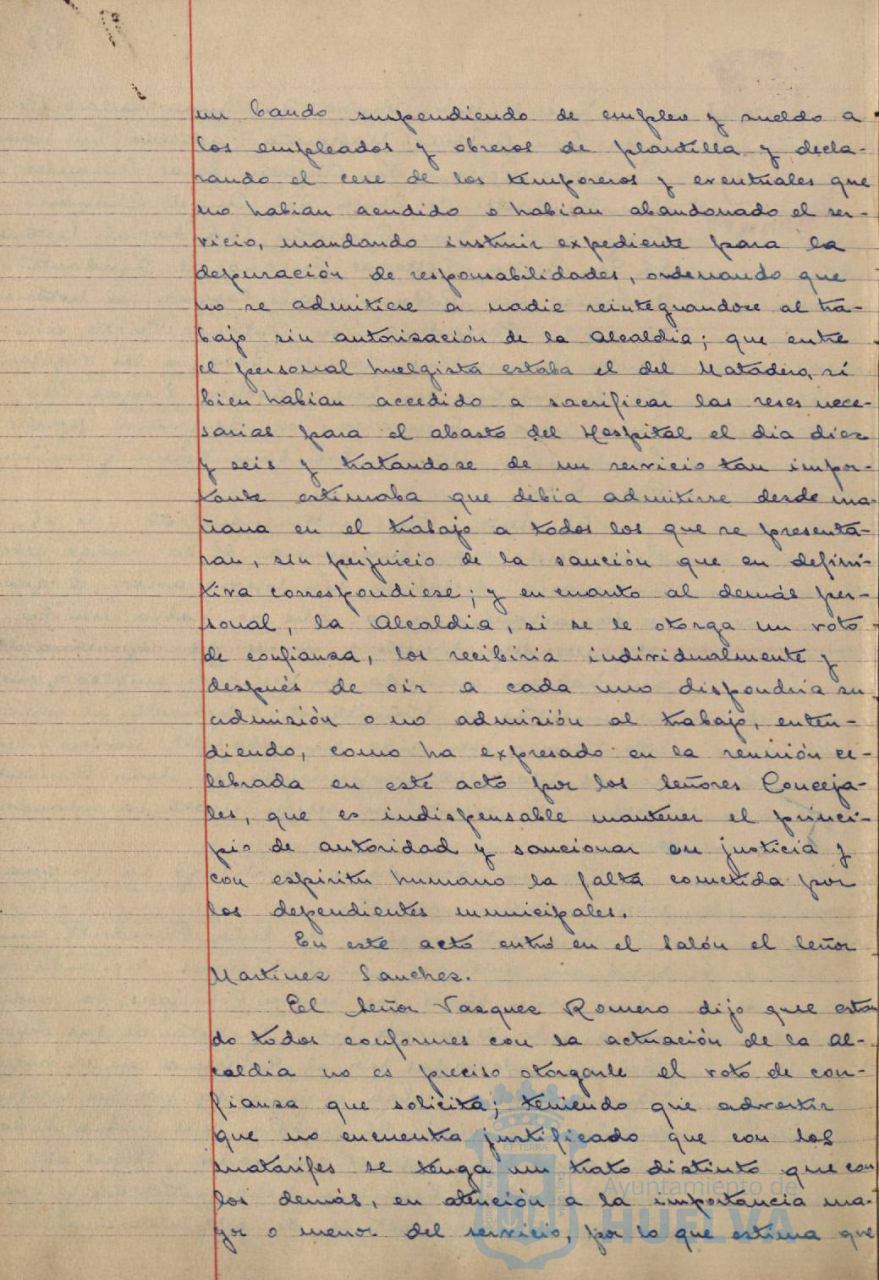 un bando suspendiendo de empleo y sueldo a
los empleados y obreros de plantilla y decla-
rando el cese de los temporeros y eventuales que
no habian acudido o habian abandonado el ser-
vicio, mandando instruir expediente para la
depuración de responsabilidades, ordenando que
no se admitiese a nadie reintegrandose al tra-
bajo sin autorización de la Alcaldia; que entre
el personal huelgista estaba el del Matadero, si
bien habian accedido a sacrificar las reses nece-
sarias para el abasto del Hospital el dia diez
y seis y tratandose de un servicio tan impor-
tante estimaba que debia admitirse desde ma-
ñana en el trabajo a todos los que se presenta-
ran, sin perjuicio de la sanción que en defini-
tiva correspondiese; y en cuanto al demás per-
sonal, la Alcaldia, si se le otorga un voto
de confianza, los recibiria individualmente y
después de oir a cada uno dispondria su
admisión o no admisión al trabajo, enten-
diendo, como ha expresado en la reunión ce-
lebrada en este acto por los Señores Conceja-
les, que es indispensable mantener el princi-
pio de autoridad y sancionar en justicia y
con espiritu humano la falta cometida por
los dependientes municipales.
En este acto entró en el Salón el Señor
Martinez Sanchez.
El Señor Vazquez Romero dijo que estan-
do todos conformes con la actuación de la Al-
caldia no es preciso otorgarle el voto de con-
fianza que solicita; teniendo que advertir
que no encuentra justificado que con los
matarifes se tenga un trato distinto que con
los demás, en atención a la importancia ma-
yor o menor del servicio, por lo que estima que
Ayuntamiento de
HUELVA